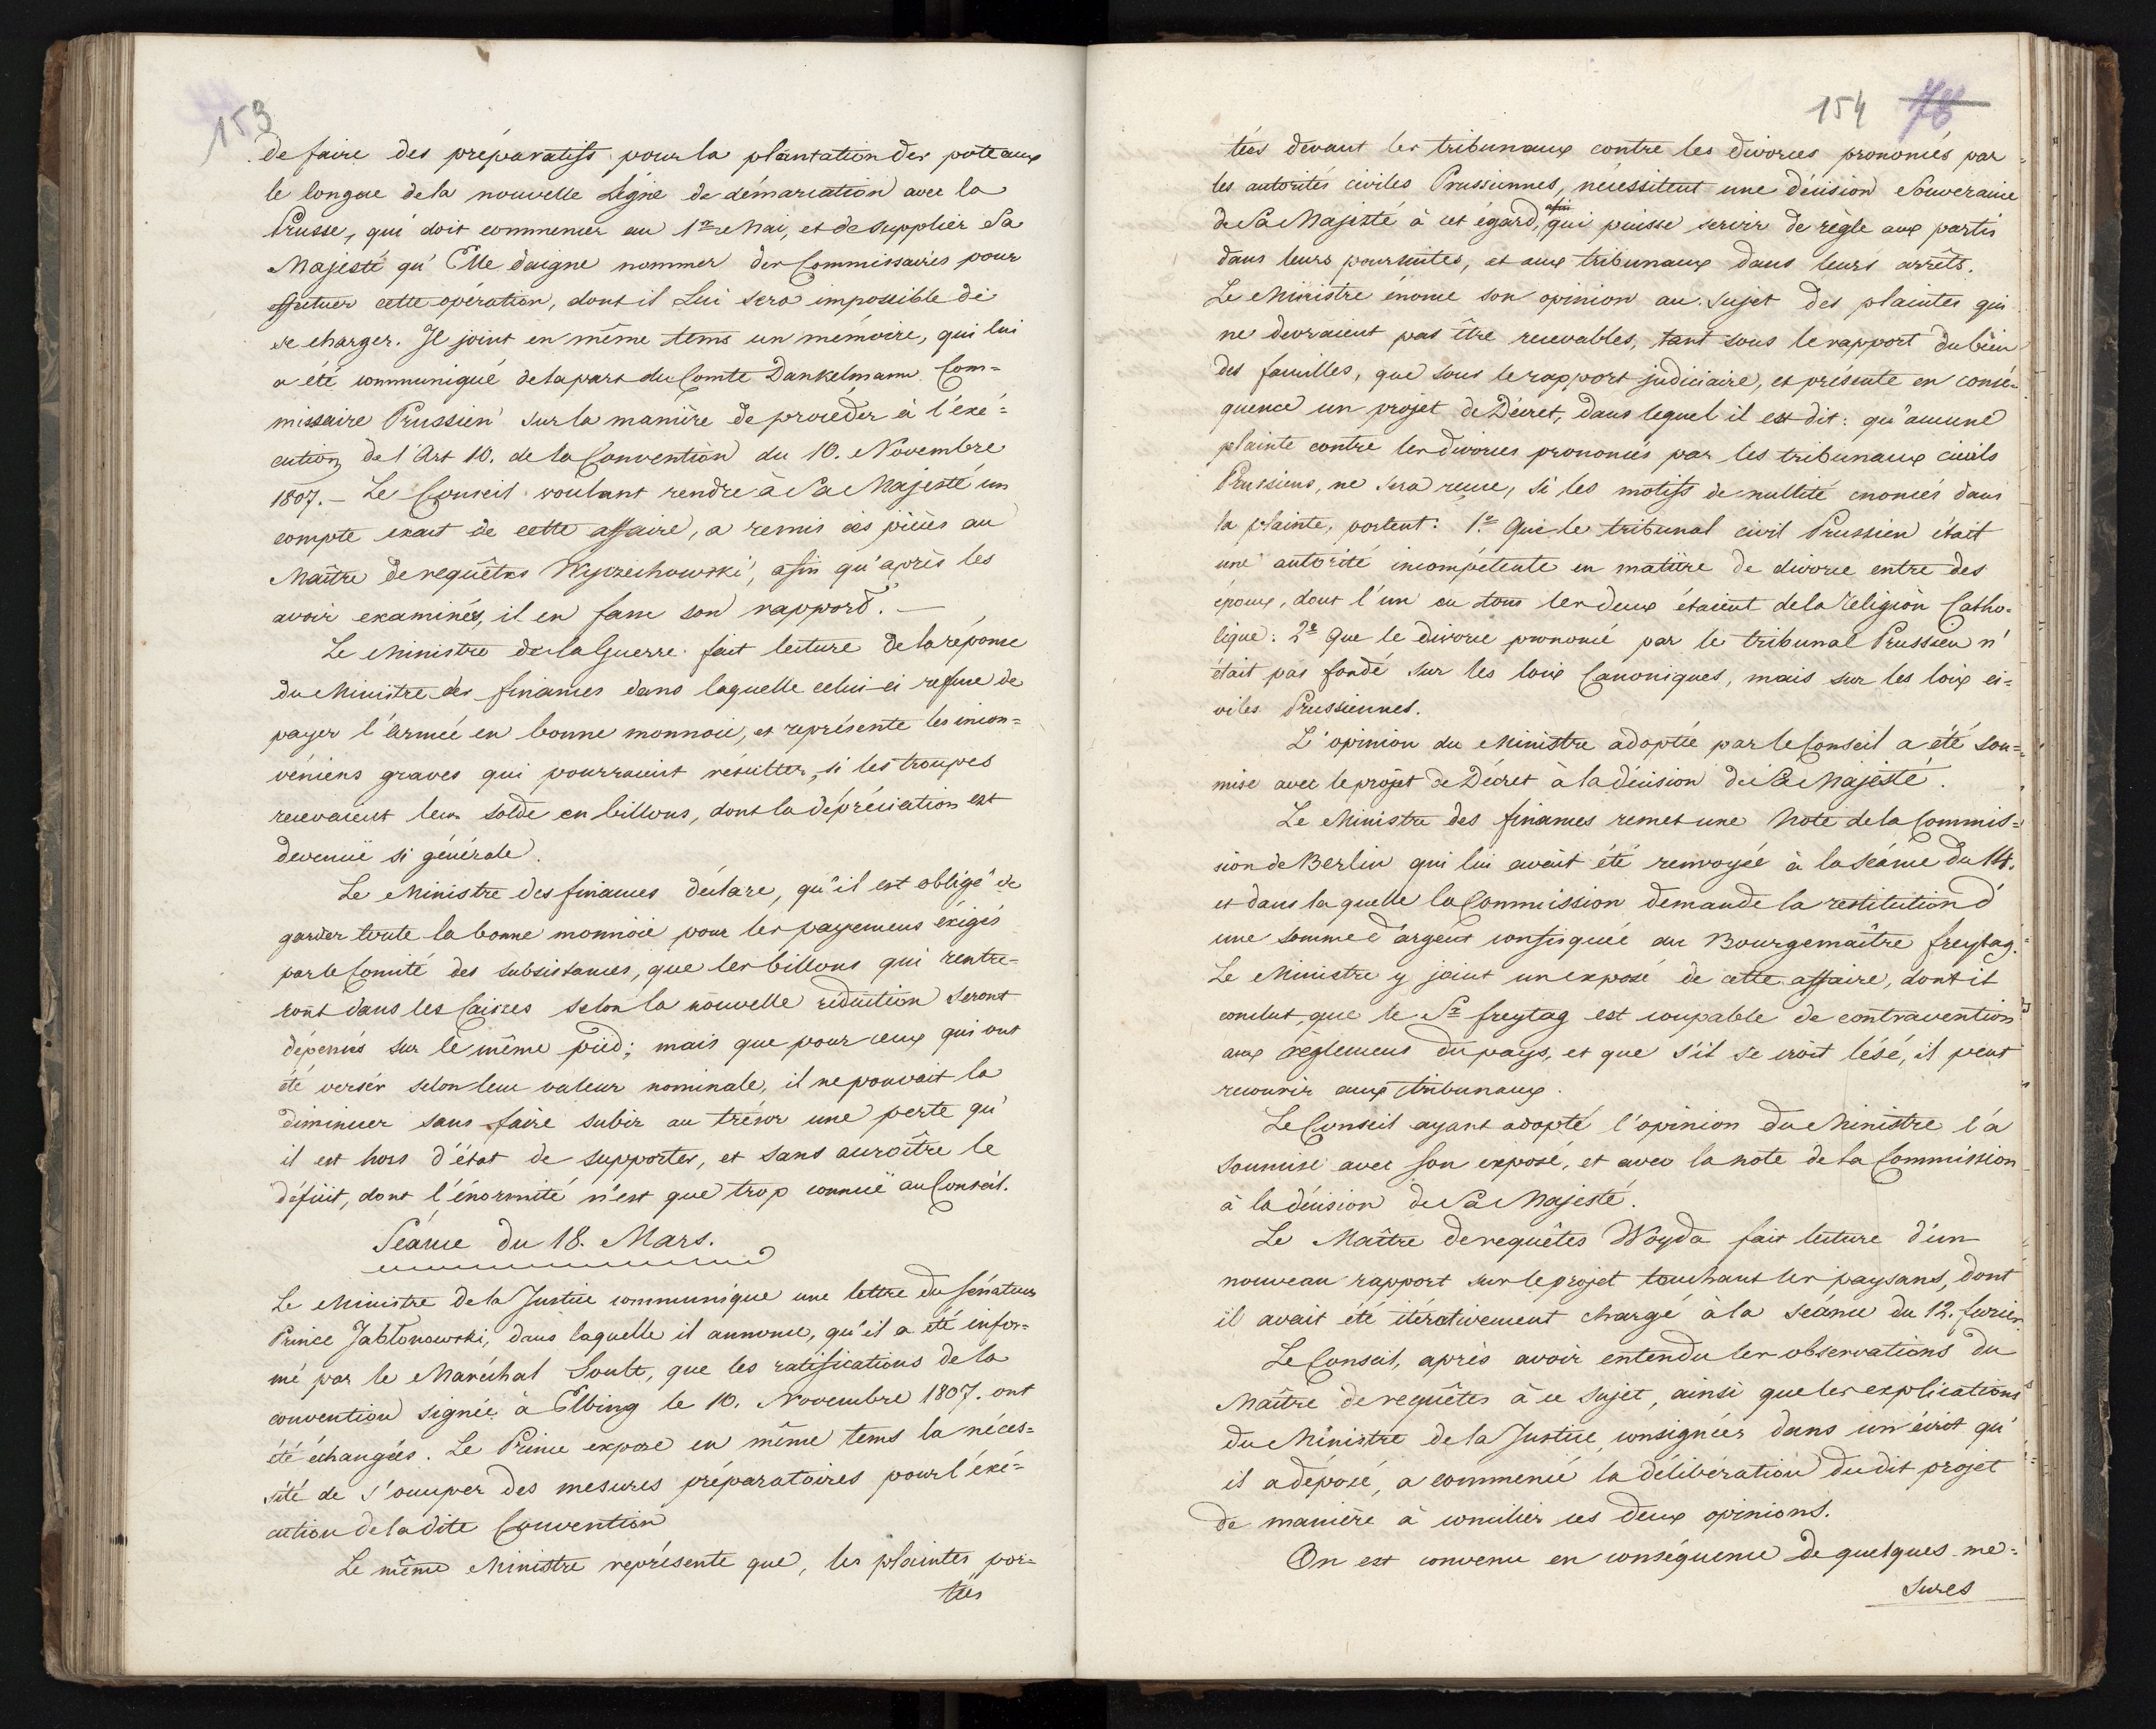 153
de faire des préparatifs pour la plantation des poteaux
le longue de la nouvelle Ligne de démarcation avec la
Prusse, qui doit commencer au 1er Mai, et de supplier Sa
Majesté qu'Elle daigne nommer des Commissaires pour
effectuer cette opération, dont il Lui sera impossible de
se charger. Il joint en même tems un mémoire, qui lui
a été communiqué de la part du Comte Dankelmann Com=
missaire Prussien sur la manière de proceder à l'exé=
cution de l'Art 10. de la Convention du 10. Novembre
1807. — Le Conseil voulant rendre à Sa Majesté un
compte exact de cette affaire, a remis ces pièces au
Maître de requêtes Wyczechowski, afin qu'après les
avoir examinées, il en fasse son rapport. —
Le Ministre de la Guerre fait lecture de la réponse
du Ministre des finances dans laquelle celui-ci refuse de
payer l'armée en bonne monnoie, et représente les incon=
véniens graves qui pourraient résulter, si les troupes
recevaient leur solde en billons, dont la dépréciation est
devenuë si générale.
Le Ministre des finances déclare, qu'il est obligé de
garder toute la bonne monnoie pour les payemens éxigés
par le Comité des subsistances, que les billons qui rentre-
ront dans les Caisses selon la nouvelle reduction seront
dépensés sur le même pied; mais que pour ceux qui ont
été versés selon leur valeur nominale, il ne pouvait la
diminuer sans faire subir au trésor une perte qu'
il est hors d'état de supporter, et sans accroître le
déficit, dont l'énormité n'est que trop connuë au Conseil.
Séance du 18. Mars.
Le Ministre de la Justice communique une lettre du Sénateur
Prince Jabłonowski, dans laquelle il annonce, qu'il a été infor=
mé par le Maréchal Soult, que les ratifications de la
convention signée à Elbing le 10. Novembre 1807. ont
été échangées. Le Prince expose en même tems la néces=
sité de s'occuper des mesures préparatoires pour l'exé=
cution de la dite Convention
Le même Ministre représente que, les plaintes por=
tées
154 78
tées devant les tribunaux contre les divorces prononcés par
les autorités civiles Prussiennes, nécessitent une décision Souveraine
de Sa Majesté à cet égard, afin qui puisse servir de règle aux partis
dans leurs poursuites, et aux tribunaux dans leurs arrêts.
Le Ministre énonce son opinion au sujet des plaintes qui
ne devraient pas être recevables, tant sous le rapport du bien
des familles, que sous le rapport judiciaire, et présente en consé=
quence un projet de Décret, dans lequel il est dit: qu'aucune
plainte contre les divorces prononcés par les tribunaux civils
Prussiens, ne sera reçue, si les motifs de nullité énoncés dans
la plainte, portent: 1.o Que le tribunal civil Prussien était
une autorité incompétente en matière de divorce entre des
époux, dont l'un ou tous les deux étaient de la religion Catho=
lique: 2e Que le divorce prononcé par le tribunal Prussien n'
était pas fondé sur les loix Canoniques, mais sur les loix ci=
viles Prussiennes.
L'opinion du Ministre adoptée par le Conseil a été sou=
mise avec le projet de Décret à la décision de Sa Majesté.
Le Ministre des finances remet une Note de la Commis=
sion de Berlin qui lui avait été renvoyée à la séance du 14.
et dans laquelle la Commission demande la restitution d'
une somme d'argent confisquée au Bourgemaître Freytag.
Le Ministre y joint un exposé de cette affaire, dont il
conclut, que le Sr Freytag est coupable de contravention
aux règlemens du pays, et que s'il se croit lésé, il peut
recourir aux tribunaux.
Le Conseil ayant adopté l'opinion du Ministre l'a
soumise avec son exposé, et avec la note de la Commission
à la décision de Sa Majesté.
Le Maître de requêtes Woyda fait lecture d'un
nouveau rapport sur le projet touchant les paysans, dont
il avait été itérativement chargé à la séance du 12. fevrier.
Le Conseil, après avoir entendu les observations du
Maître de requêtes à ce sujet, ainsi que les explications
du Ministre de la Justice, consignées dans un écrit qu'
il a déposé, a commencé la délibération du dit projet
de manière à concilier ces deux opinions.
On est convenu en conséquence de quelques me=
sures